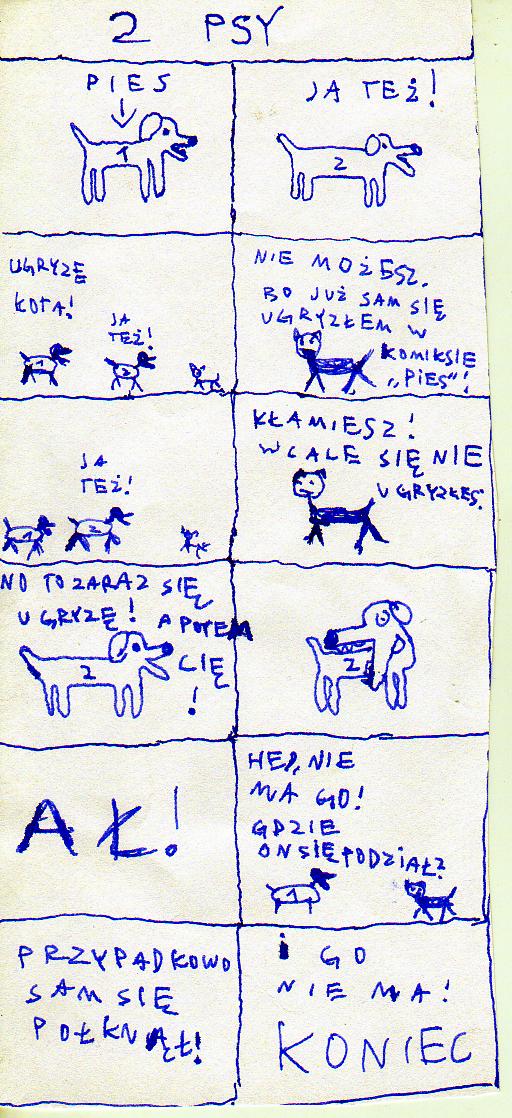 2 PSY
PIES
1
JA TEŻ!
2
UGRYZĘ
KOTA!
JA
TEŻ!
1
2
NIE MOŻESZ.
BO JUŻ SAM SIĘ
UGRYZŁEM W
KOMIKSIE
„PIES"!
JA
TEŻ!
1
2
KŁAMIESZ!
WCALE SIĘ NIE
UGRYZŁEŚ.
NO TO ZARAZ SIĘ
UGRYZĘ! A POTEM
CIĘ
!
2
2
AŁ!
HEJ, NIE
MA GO!
GDZIE
ON SIĘ PODZIAŁ?
1
PRZYPADKOWO
SAM SIĘ
POŁKNĄŁ!
i GO
NIE MA!
KONIEC